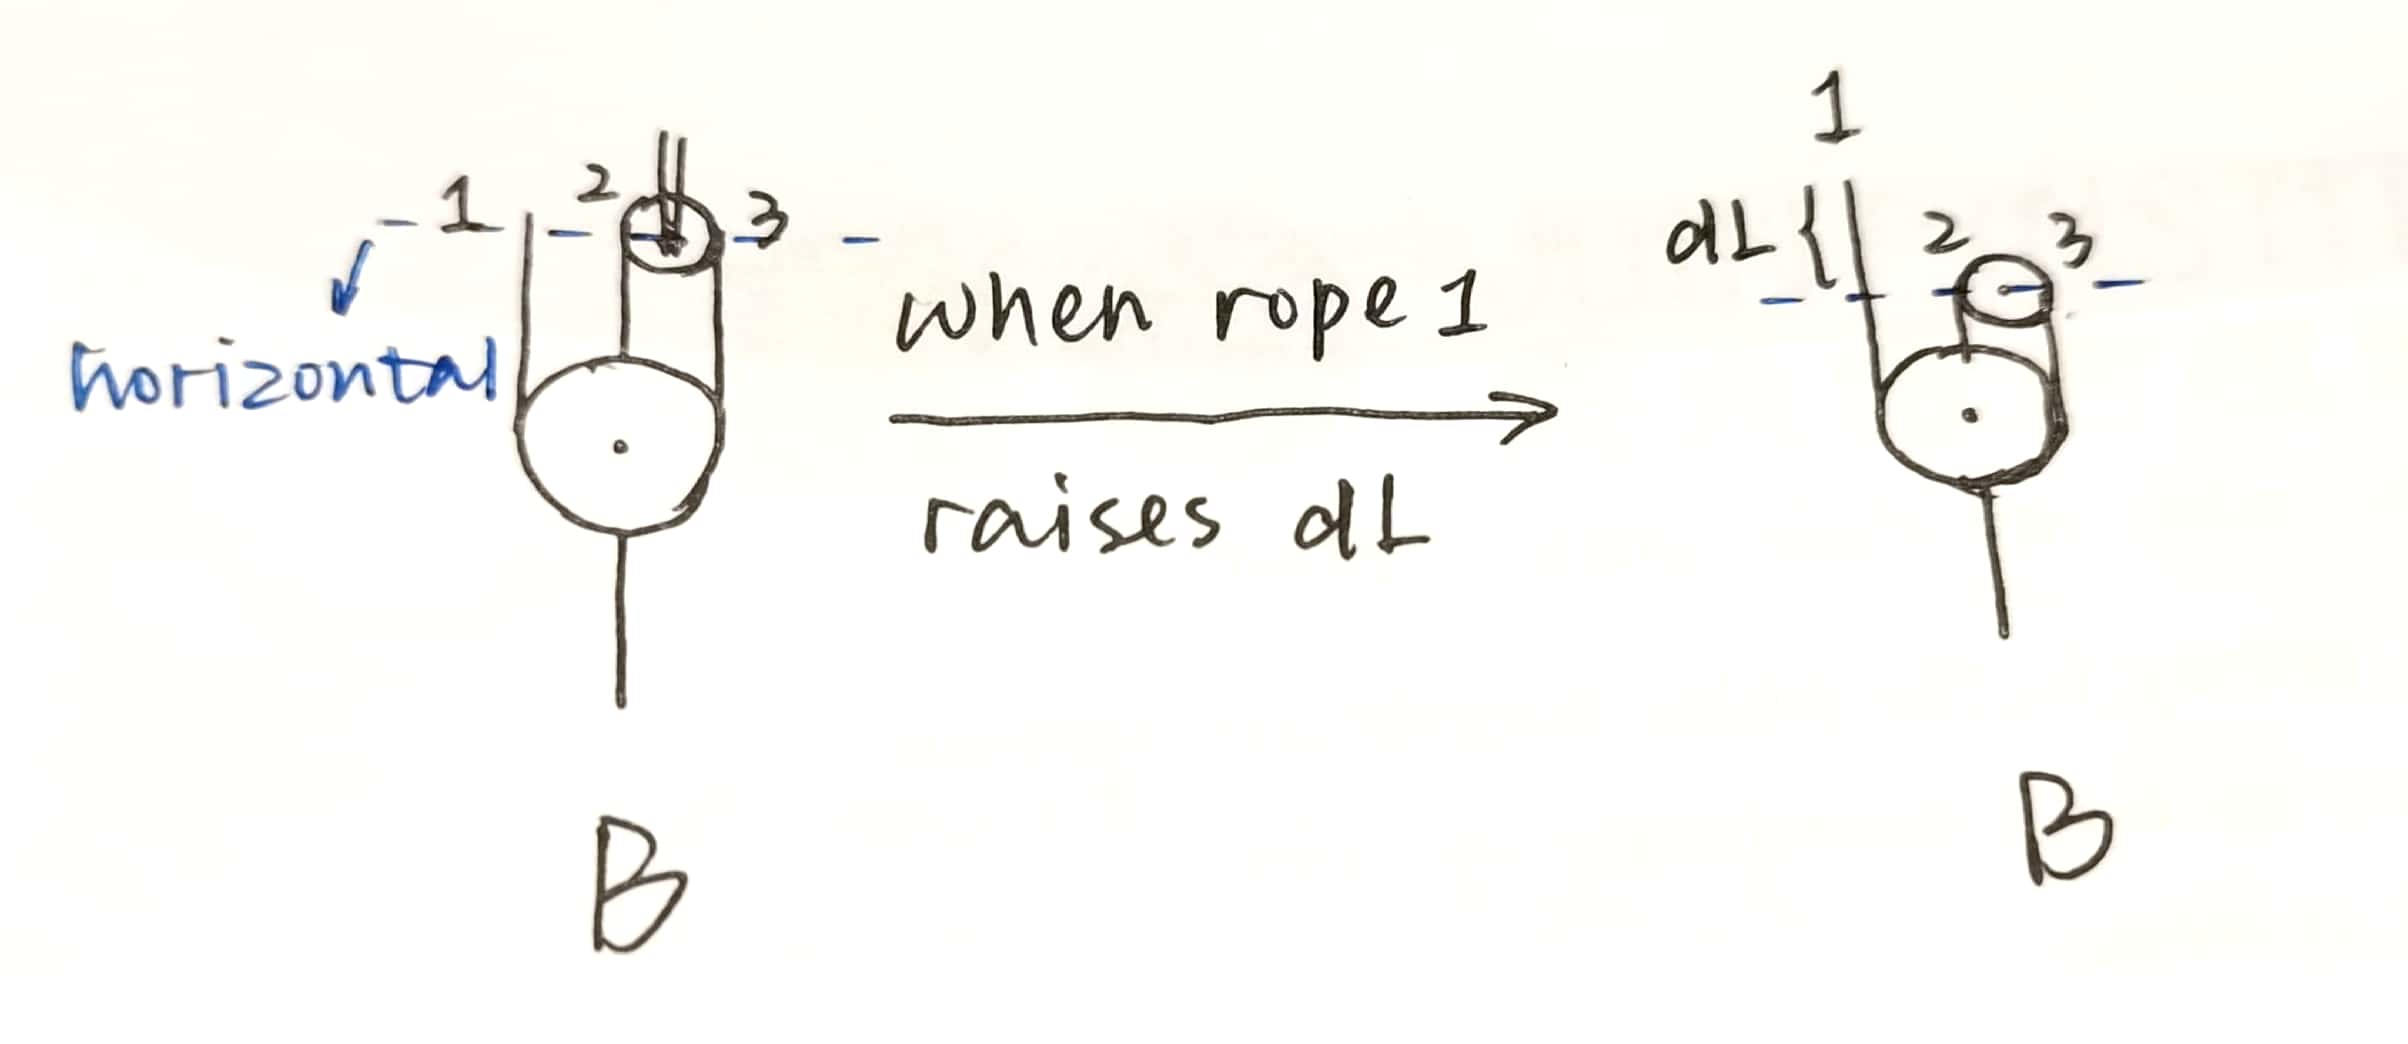 1 2 3
horizontal
B
when rope 1
raises dL
1
dL 2 3
B